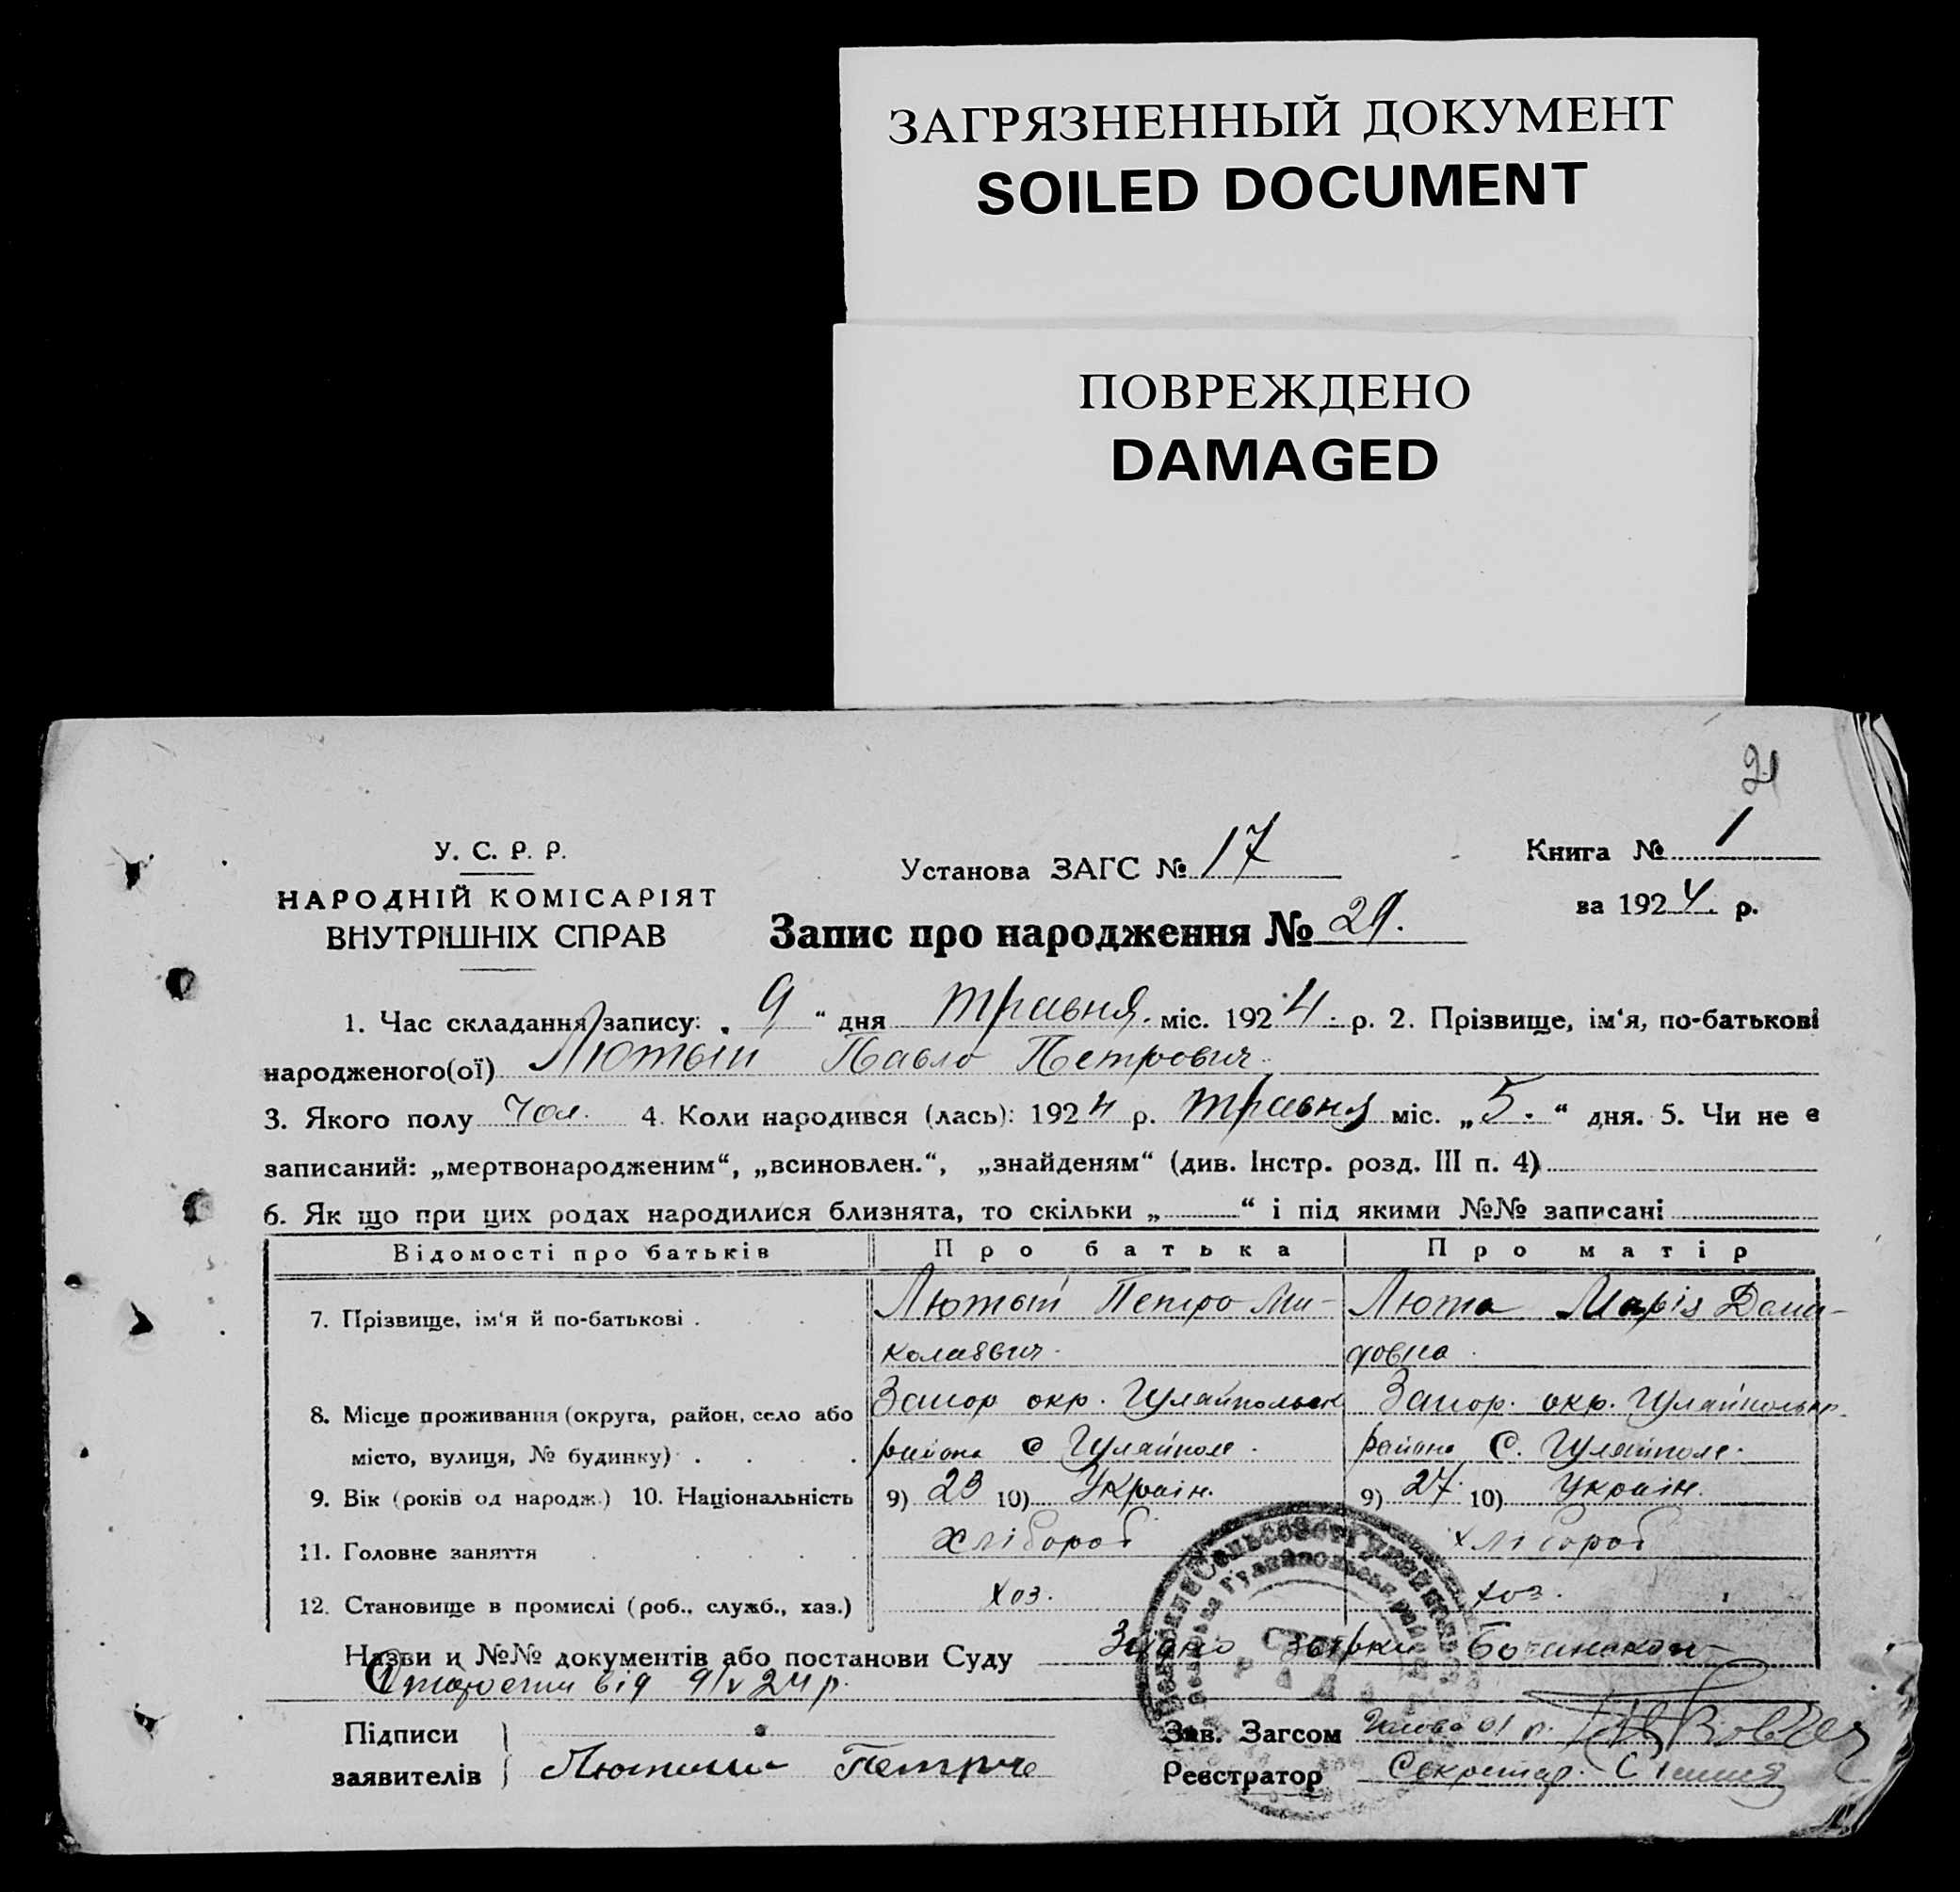 ЗАГРЯЗНЕННЫЙ ДОКУМЕНТ
SOILED DOCUMENT
ПОВРЕЖДЕНО
DAMAGED
21
У. С. Р. Р.
НАРОДНІЙ КОМІСАРІЯТ
ВНУТРІШНІХ СПРАВ
Установа ЗАГС № 17
Книга № 1
за 1924. р.
Запис про народження № 29.
1. Час складання запису: „ 9 “ дня травня. міс. 1924. р. 2. Прізвище, ім‘я, по-батькові
народженого(ої) Лютый Павло Петрович.
3. Якого полу Чол. 4. Коли народився (лась): 1924 р. травня міс. „5.“ дня. 5. Чи не є
записаний: „мертвонародженим“, „всиновлен.“, „знайденям“ (див. Інстр. розд. III п. 4)
6. Як що при цих родах народилися близнята, то скільки „ “ і під якими №№ записані
Відомості про батьків Про батька Про матір
7. Прізвище, ім‘я й по-батькові . Лютый Петро Ми- Люта Марія Деми-
колаєвич. довна.
8. Місце проживання (округа, район, село або Запор окр. Гуляйпольськ Запор. окр. Гуляйпольськ.
місто, вулиця, № будинку) . района с Гуляйполе. района С. Гуляйполе.
9. Вік (років од народж.) 10. Національність 9) 23 10) Украін. 9) 27. 10) Украін.
11. Головне заняття хлібороб хлібороб
12. Становище в промислі (роб., служб., хаз.) хоз. хоз.
Назви и №№ документів або постанови Суду
від 9/V 24 р.
Підписи
заявителів Петро
Зав. Загсом
Реєстратор Секретар.